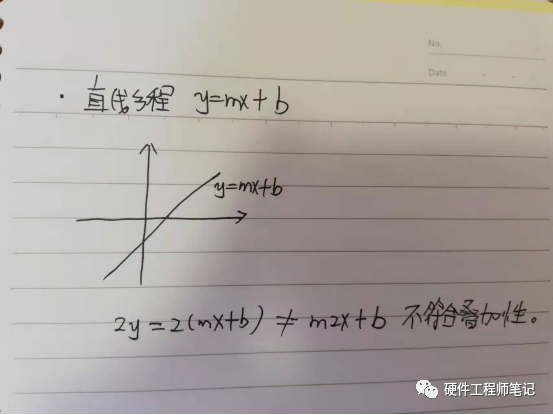 No.
Date
· 直线方程 y=mx+b
y=mx+b
2y=2(mx+b) ≠ m2x+b 不符合叠加性。
硬件工程师笔记